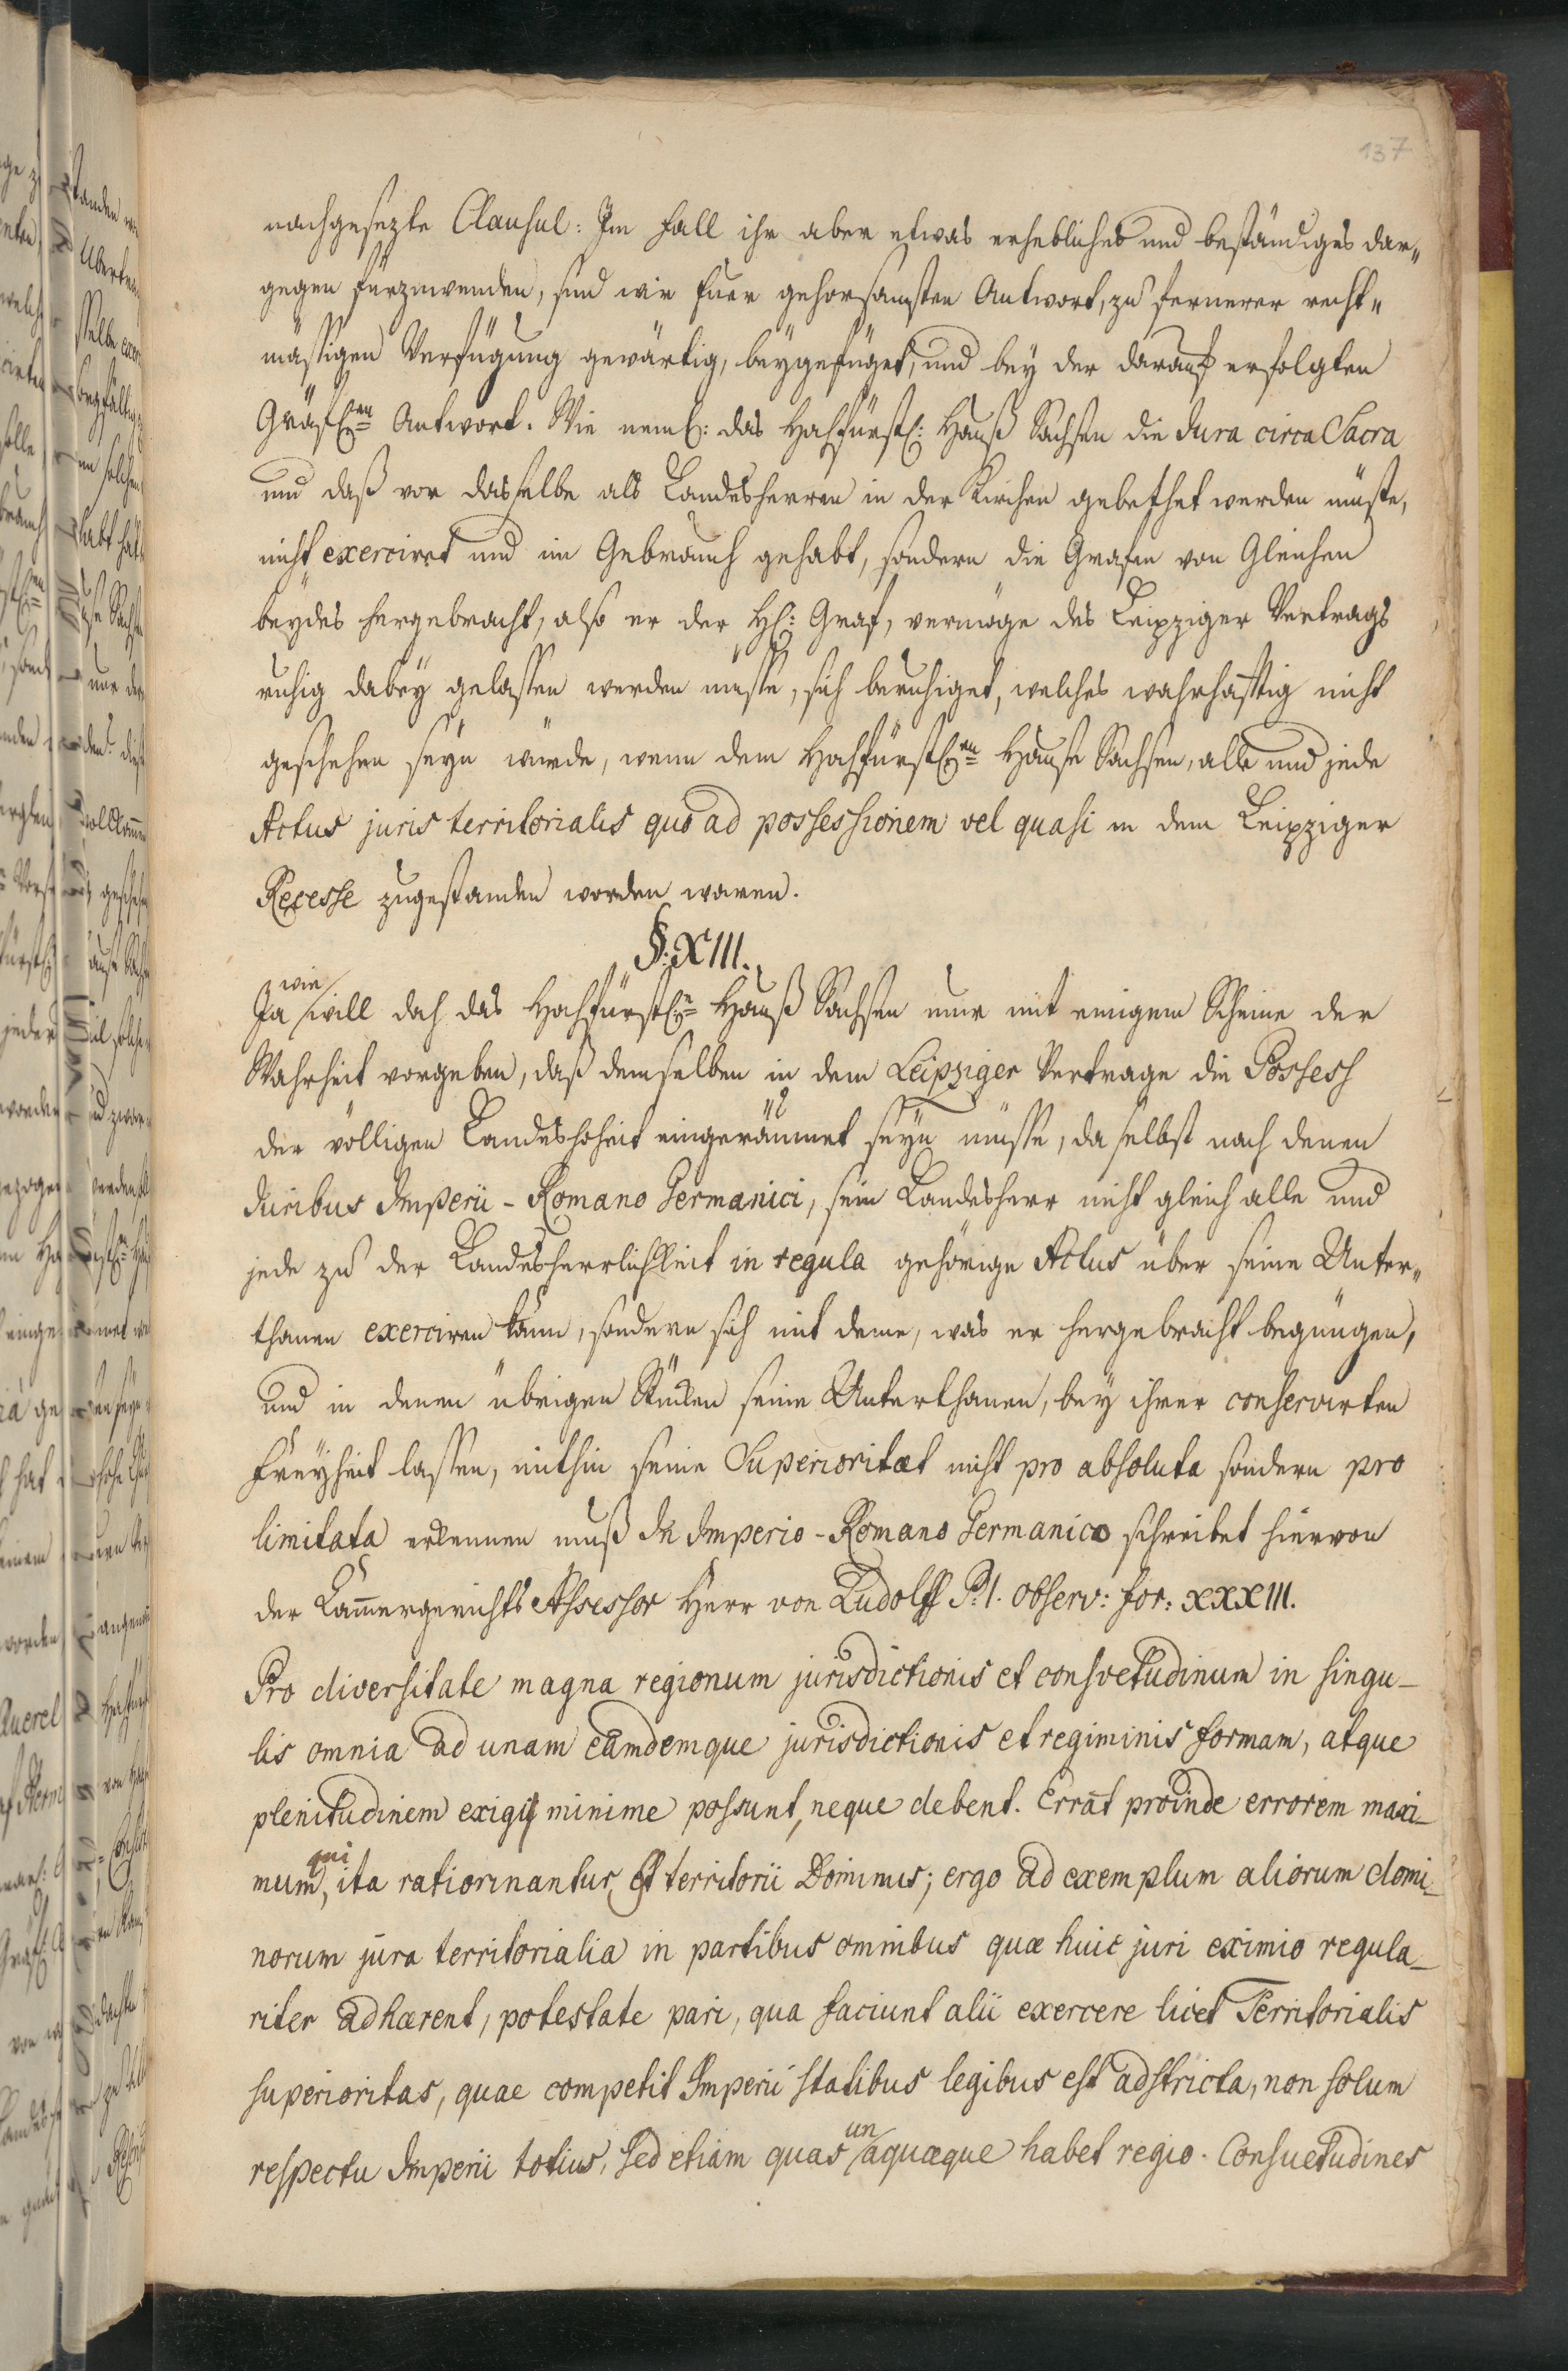 137
nachgesezte Clausul: Im Fall ihr aber etwas erhebliches und beständiges dar„
gegen fürzuwenden, sind wir Euer gehorsamsten Antwort, zu fernerer recht„
mäßigen Verfügung gewärtig, beygefüget, und bey der darauf erfolgten
Gräfl:en Antwort. Wie neml: das Hochfürstl: Hauß Sachsen die Jura circa Sacra
und daß vor dasselbe als Landesherren in der Kirchen gebethet werden müste,
nicht exerciret und im Gebrauch gehabt, sondern die Grafen von Gleichen
beydes hergebracht, also er der H: Graf, vermöge des Leipziger Vertrags
ruhig dabey gelassen werden müsse, sich beruhiget, welches wahrhafftig nicht
geschehen seyn würde, wenn dem Hochfürstl:en Hause Sachsen, alle und jede
Actus juris territorialis quo ad possessionem vel quasi in dem Leipziger
Recesse zugestanden worden waren.
§: XIII.
Ja wie will doch das Hochfürstl:e Hauß Sachsen nur mit einigem Scheine der
Wahrheit vorgeben, daß demselben in dem Leipziger Vertrage die Possess
der völligen Landeshoheit eingeräumet seyn müsse, da selbst nach denen
Juribus Imperii-Romano Germanici, sein Landesherr nicht gleich alle und
jede zu der Landesherrlichkeit in regula gehörige Actus über seine Unter„
thanen exerciren kann, sondern sich mit deme, was er hergebracht begnügen,
und in denen übrigen Stücken seine Unterthanen, bey ihrer conservirten
Freyheit lassen, mithin seine Superioritæt nicht pro absoluta sondern pro
limitata erkennen muß In Imperio-Romano Germanico schreibet hiervon
der Cammergerichts Assessor Herr von Ludolff P. 1. Observ: for: XXXIII.
Pro diversitate magna regionum jurisdictionis et consvetudinum in singu-
lis omnia ad unam eamdemque jurisdictionis et regiminis formam, atque
plenitudinem exigi minime possunt, neque debent. Errat proinde errorem maxi-
mum, qui ita ratiocinantur, Est territorii Dominus; ergo ad exemplum aliorum domi-
norum jura territorialia in partibus omnibus quæ huic juri eximio regula-
riter adhærent, potestate pari, qua faciunt alii exercere licet Territorialis
superioritas, quae competit Imperii statibus legibus est adstricta, non solum
respectu Imperii totius, sed etiam quas unaquæque habet regio. Consuetudines